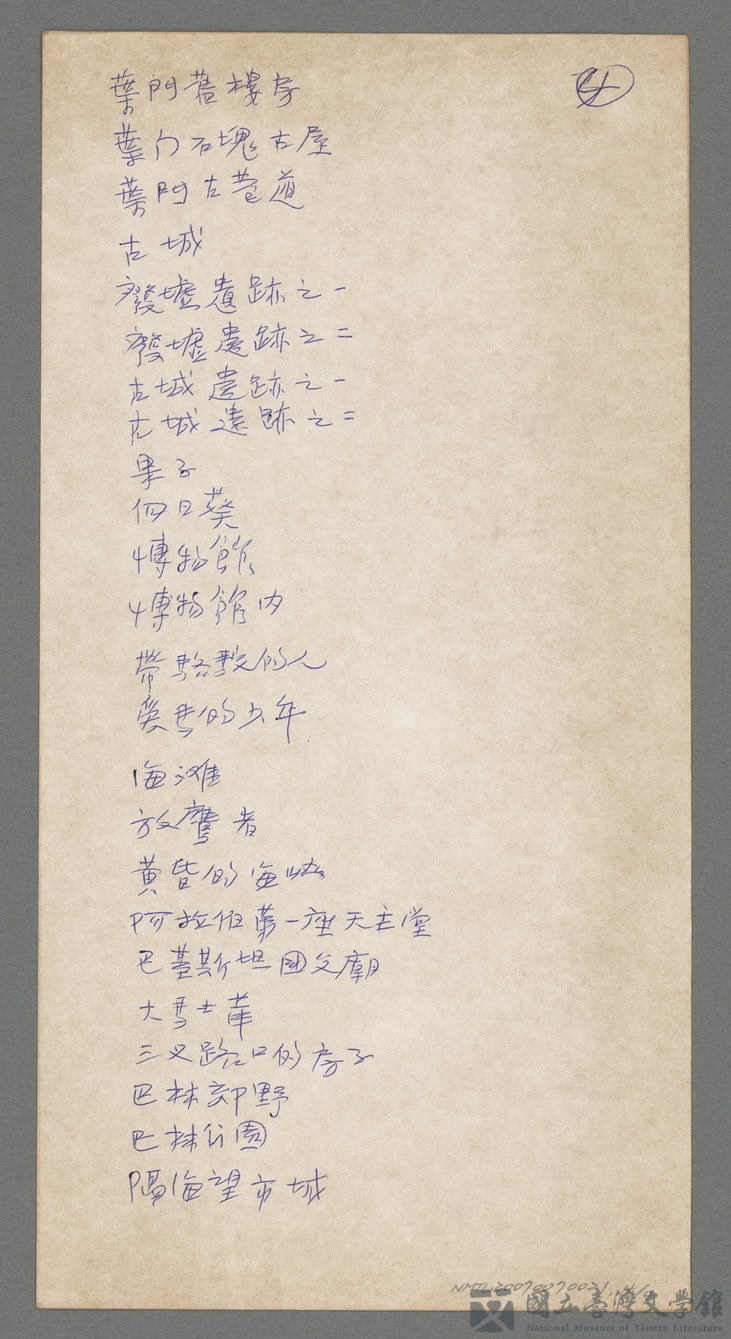 4
葉門舊樓房
葉门石塊古屋
葉門古巷道
古城
廢墟遺跡之一
廢墟遺跡之二
古城遺跡之一
古城遺跡之二
果子
向日葵
博物館
博物館內
帶駱駝的人
愛馬的少年
海灘
放鷹者
黃昏的海峽
阿拉伯第一座天主堂
巴基斯坦國父廟
大馬士革
三叉路口的房子
巴林郊野
巴林公園
隔海望市城
國立臺灣文學館
National Museum of Taiwan Literature